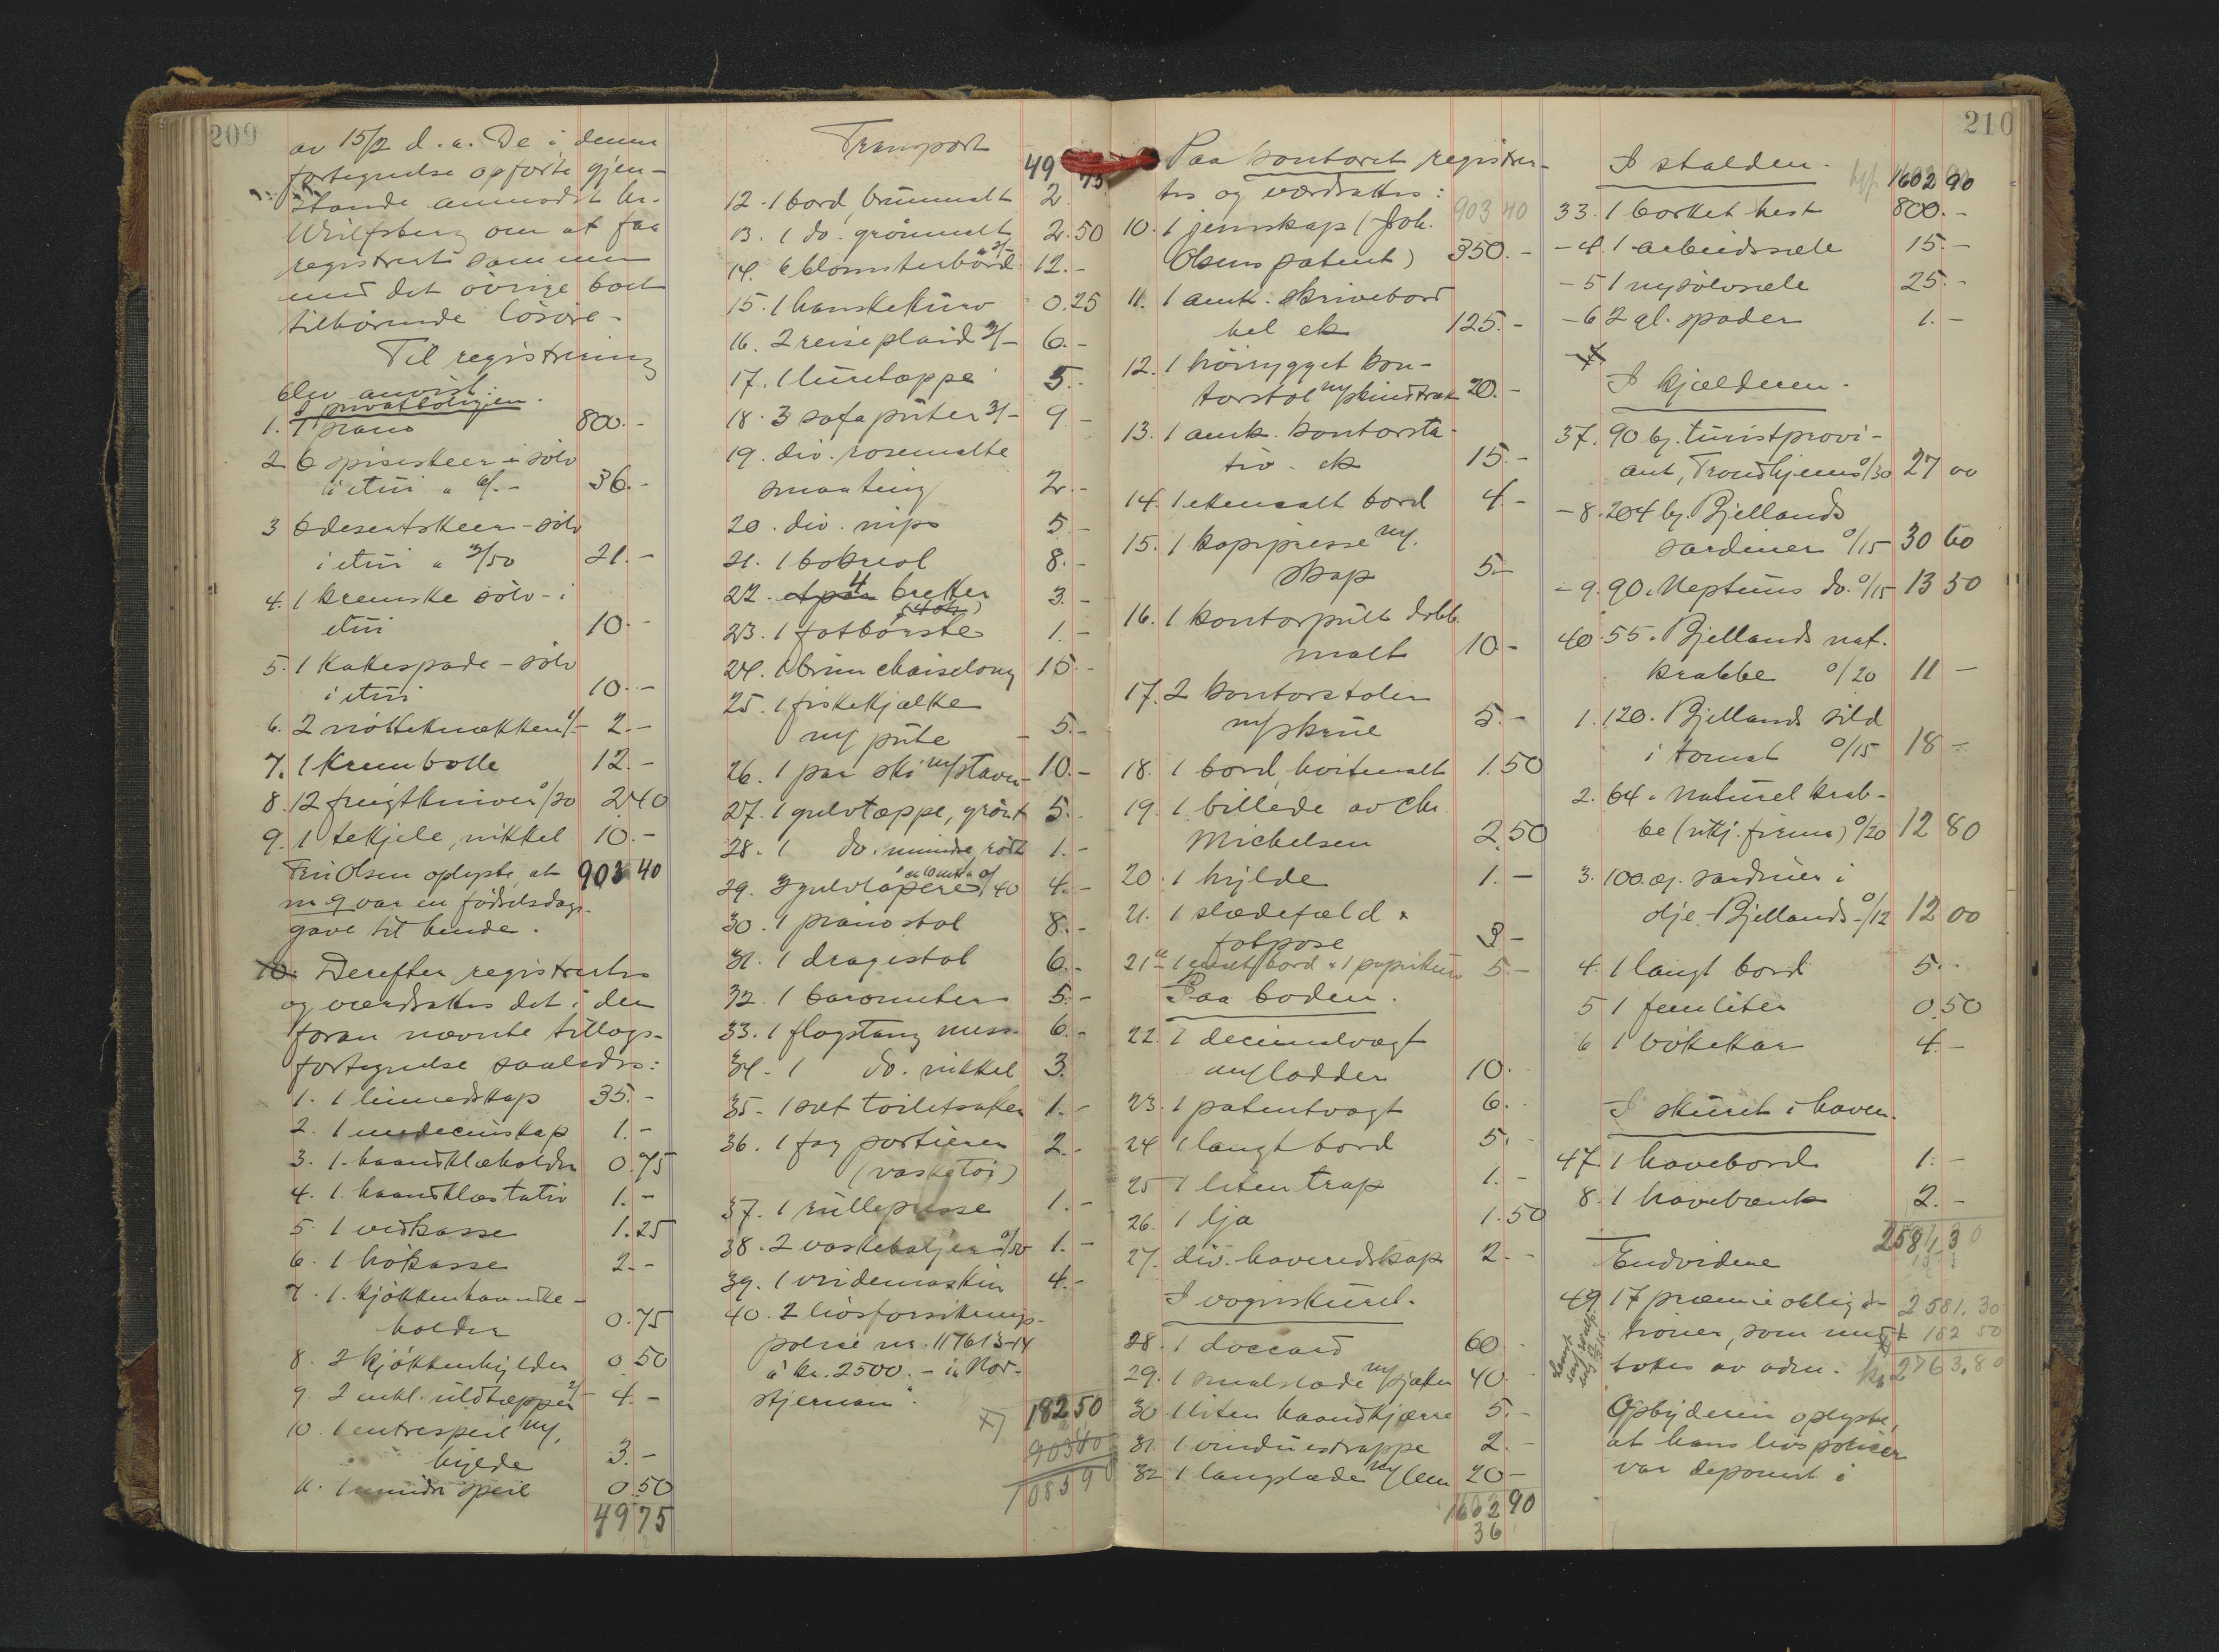 209
av 15/2 d.a. De i denne
fortegnelse opførte gjen-
stande anmodet hr.
Wulfsberg om at faa
registrert sammen
med det øvrige boet
tilhørende løsøre.
Til registrering
blev anvist:
I privatboligen.
1. 1 piano 800.-
2 6 spiseskeer i sølv
i etui a 6/- 36.-
3 6 desertskeer - sølv
i etui a 3/50 21.-
4. 1 kremske sølv - i
etui 10.-
5. 1 kakespade - sølv
i etui 10.-
6. 2 nøtteknækker 1/- 2.-
7. 1 krembolle 12.-
8. 12 frugtkniver 0/20 2.40
9. 1 tekjele, nikkel 10.-
Fru Olsen oplyste, at 903 40
nr 9 var en fødselsdags-
gave til hende.
10. Derefter registrertes
og værdsattes det i den
foran nævnte tillægs-
fortegnelse saaledes:
1. 1 linnedskap 35.-
2. 1 medecinskap 1.-
3. 1 haandklæholder 0.75
4. 1 haandklæstativ 1.-
5. 1 vedkasse 1.25
6. 1 høkasse 2.-
7. 1 kjøkkenhaandklæ-
holder 0.75
8. 2 kjøkkenhylder 0.50
9. 2 enkl. uldtæpper 2/- 4.-
10. 1 entrespeil m/
hylde 3.-
11. 1 mindre speil 0.50
49 75
Transport 49 75
12. 1 bord, brunmalt 2.
13. 1 do. grønmalt 2.50
14. 6 blomsterbord a 2/- 12.-
15. 1 hanskekurv 0.25
16. 2 reiseplaid 3/- 6.-
17. 1 luretæppe 5.-
18. 3 sofaputer 3/- 9.-
19. div. rosemalte
smaating 2.-
20. div. nips 5.-
21. 1 bokreol 8.-
22. 4 bretter 3.-
23. 1 fotbørste 1.-
24. 1 brun chaiselong 15.-
25. 1 fiskekjælke
m/ pute 5.-
26. 1 par ski m/ staver 10.-
27. 1 gulvtæppe, grønt 5.-
28. 1 do. mindre, rødt 1.-
29. gulvløpere 0/40 4.-
30. 1 pianostol 8.-
31. 1 dragestol 6.-
32. 1 barometer 5.-
33. 1 flagstang mess. 6.-
34. 1 do. nikkel 3.
35. 1 sæt toiletsaker 1.-
36. 1 fag portierer 2.-
(vasketøi)
37. 1 rullepresse 1.-
38. 2 vaskebaljer 0/50 1.-
39. 1 vridemaskin 4.-
40. 2 livsforsikrings-
polise nr. 117613-14
à kr. 2500.- i „Nor-
stjernan“.
x) 182 50
903 40
1085 90
Paa kontoret registrer-
tes og værdsattes:
903 40
10. 1 jernskap (Joh.
Olsens patent) 350.-
11. 1 amk. skrivebord
hel ek 125.-
12. 1 høirygget kon-
torstol m/ skindtræk 20.-
13. 1 amk. kontorsta-
tiv - ek 15.-
14. 1 ekemalt bord 4.-
15. 1 kopipresse m/
skap 5.-
16. 1 kontorpult dobb.
malt 10.-
17. 2 kontorstoler
m/ skrue 5.-
18. 1 bord, hvitmalt 1.50
19. 1 billede av Chr.
Michelsen 2.50
20. 1 hylde 1.-
21. 1 slædefæld &
fotpose
21a 1 bord & 1 papirkurv 5.-
Paa boden.
22. 1 decimalvægt
m/ lodder 10.
23. 1 patentvægt 6.
24 1 langt bord 5.
25 1 liten trap 1.-
26. 1 lja 1.50
27. div. haveredskap 2.-
I vognskuret.
28. 1 doccard 60.
29. 1 smalslæde m/ skjæker 40.
30 1 liten haandkjærre 5.-
31. 1 vinduestrappe 2.-
32 1 langslæde m/ lem 20.-
1602 90
36
210
I stalden. 1602 90
33. 1 borket hest 800.-
-4. 1 arbeidssele 15.-
-5 1 nysølvsele 25.-
-6 2 gl. spader 1.-
I kjælderen.
37. 90 bj. turistprovi-
ant, Trondhjems 0/30 27 00
-8. 204 bj. Bjellands
sardiner 0/15 30 60
-9. 90. Neptuns do. 0/15 13 50
40. 55. Bjellands nat.
krabbe 0/20 11 -
1. 120. Bjellands sild
i tomat 0/15 18 -
2. 64. Naturel krab-
be (ukj. firma) 0/20 12 80
3. 100 æ. sardiner i
olje - Bjellands - 0/12 12 00
4. 1 langt bord 5.-
5 1 femliter 0.50
6 1 bøkekar 4.-
I skuret i haven.
47. 1 havebord 1.-
8. 1 havebænk 2.-
2581,30
Endvidere
49. 17 præmieobliga- 2581.30
tioner, som mot- 182 50
tokes av adm. kr. 2763.80
Opbyderen oplyste,
at hans livspoliser
var deponert i